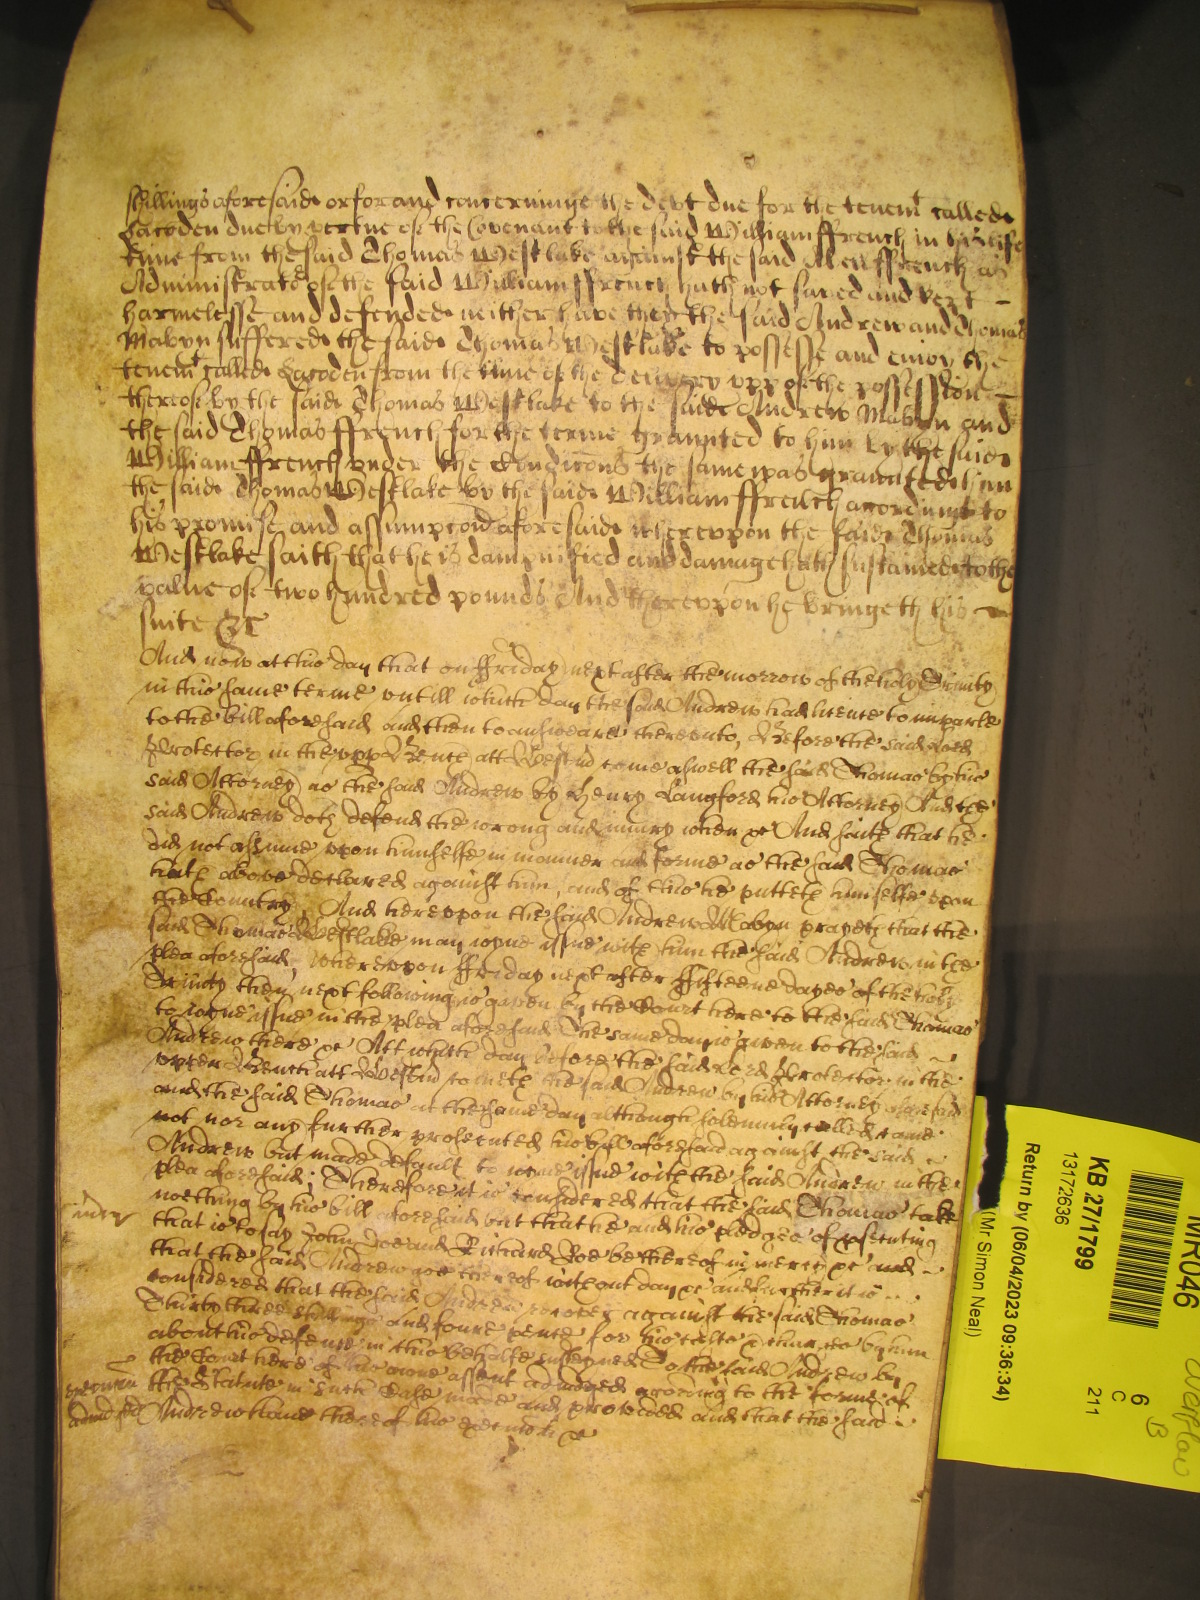 shillings aforesaide or for and concerninge the debt due for the tenemt called
due by vertue of the Covenant to the said William ffrench in his life
time from the said Thomas Westlake against the said ffrench as
Administrator of the said William ffrench hath not saved and kept
harmelesse and defended neither have they the said Andrew and Thomas
Mabyn suffered the saide Thomas Westlake to possesse and enioy the
tenemt called from the time of the delivery upp of the possession
thereof by the saide Thomas Westlake to the saide Andrew Mabyn and
the said Thomas ffrench for the terme graunted to him by the saide
William ffrench under the Condicons the same was graunted him
the saide Thomas Westlake by the saide William ffrench accordinge to
his promise and assumpcion aforesaide whereuppon the saide Thomas
Westlake saith that he is dampnified and damage hath sustained to the
value of two hundred pounds And thereuppon he bringeth his
suite &c
And now at this day that on ffriday next after the morrow of the holy Trinity
in this same terme untill which day the said Andrew had licence to imparle
to the bill aforesaid and then to answeare thereunto, Before the said Lord
Protector in the upp Bench att Westm come aswell the said Thomas by his
said Attorney as the said Andrew by Henry Langford his Attorney And the
said Andrew doth defend the wrong and iniury when &c And saith that he
did not assume upon himselfe in manner and forme as the said Thomas
hath above declared against him, and of this he putteth himselfe upon
the Country, And hereupon the said Andrew Mabyn prayeth that the
said Thomas Westlake may ioyne issue with him the said Andrew in the
plea aforesaid, whereupon ffriday next after ffifteene dayes of the holy
Trinity then next following is given by the Court here to the said Thomas
to ioyne issue in the plea aforesaid The same day is given to the said
Andrew there &c Att which day before the said Lord Protector in the
upper Bench att Westm cometh the said Andrew by his Attorney aforesaid
and the said Thomas at the same day although solemnly called came
not nor any further prosecuted his bill aforesaid against the said
Andrew but made default to ioyne issue with the said Andrew in the
plea aforesaid; Therefore it is considered that the said Thomas take
mercy
nothing by his bill aforesaid but that he and his pledges of prosecuting
that is to say John Doe and Richard Roe be thereof in mercy &c and
that the said Andrew goe thereof without day &c and further it is
considered that the said Andrew recover against the said Thomas
Thirty three shillings and foure pence for his costs & charges by him
about his defence in this behalfe susteyned To the said Andrew by
the Court here of his owne assent adiudged according to the forme of
execucon
the Statute in such Case made and provided and that the said
Andrew have thereof his execucon &c
MR046
KB 27/1799
13172636
Return by (06/04/2023 09:36:34)
(Mr Simon Neal)
6
C
211
B